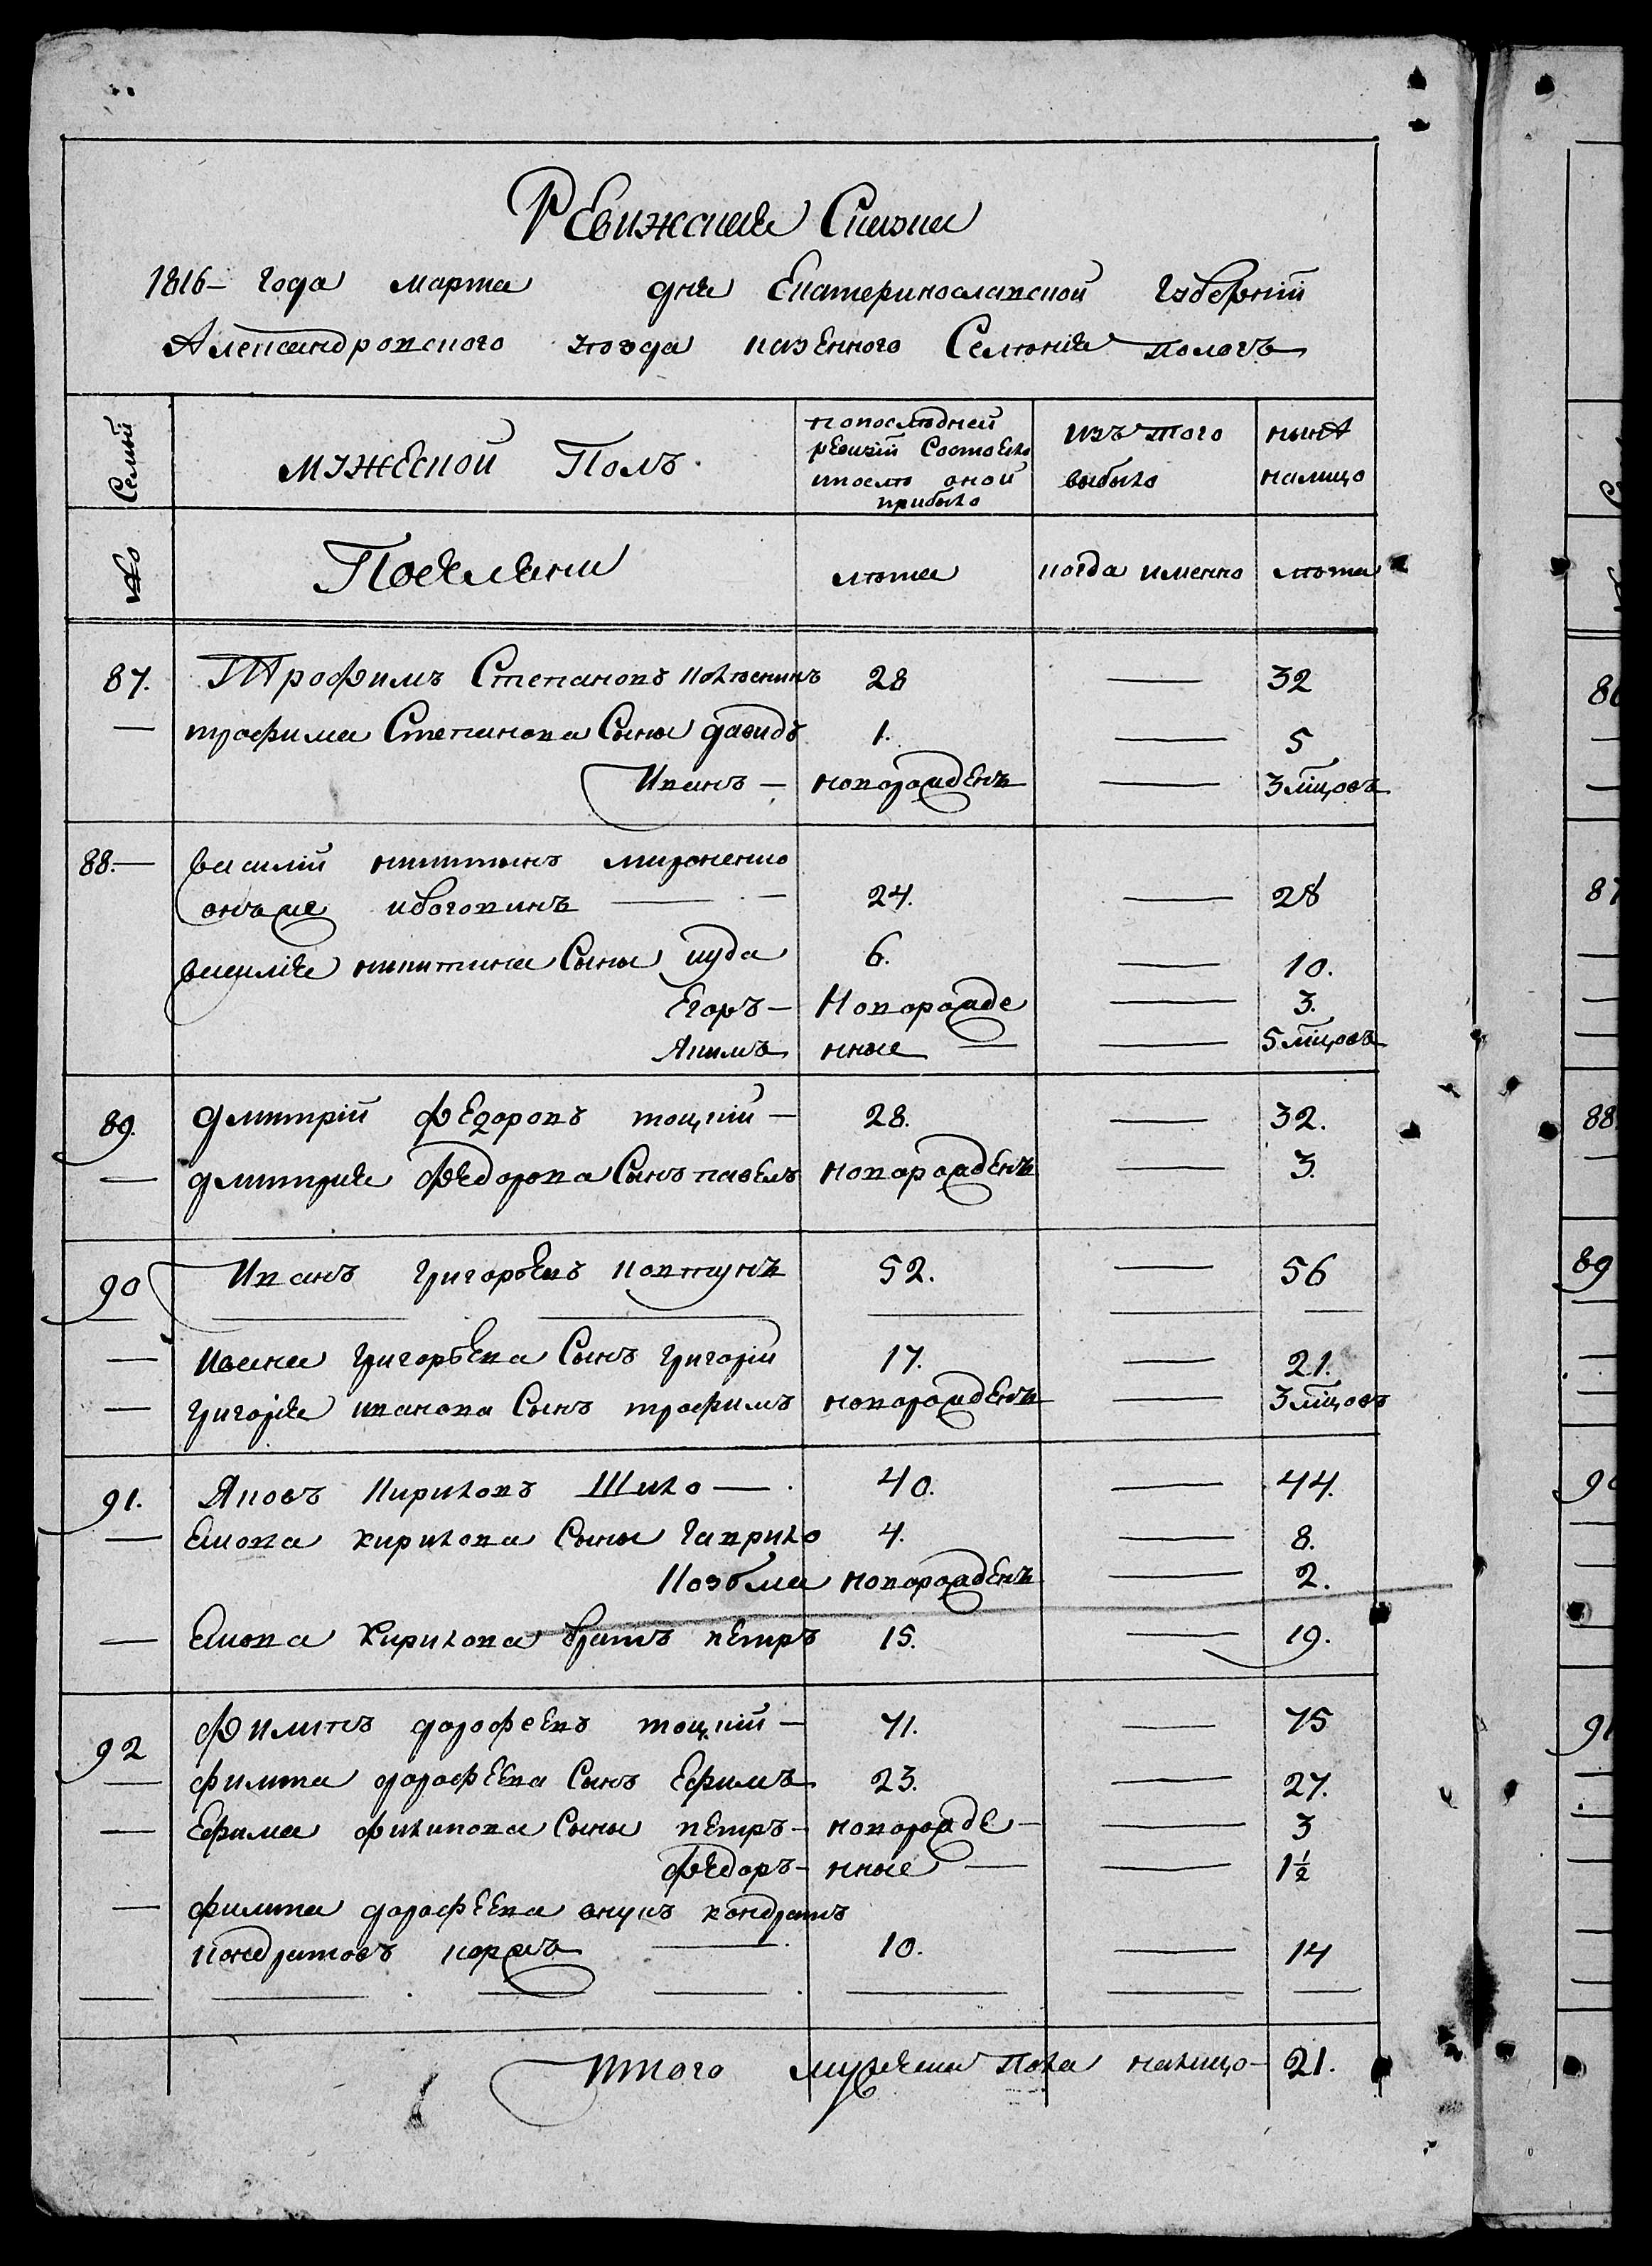 Ревижская Скаска
1816 – года марта дня Екатеринославской губернии
Александровского уезда казенного Селения пологъ
Семьи
мужеской Полъ
попоследней ревизии Состоело ипосле оной прибыло
изъ того выбыло
ныне налицо
№
Поселяни
лета
когда именно
лета
87. Трофимъ Степановъ 28 — 32
— трофима Степанова Сыны давидъ 1. — 5
Иванъ — новорожденъ — 3 м̃цовъ
88. — василій никитинъ мироненко
онъже ибоговинъ — 24. — 28
василія никитина Сыны иуда 6. — 10.
Егоръ — Новорожде — 3.
Якимъ нные — 5 м̃цовъ
89. дмитрій Федоровъ тоцкий — 28. — 32.
— дмитрия Федорова Сынъ павелъ новорожденъ — 3.
90 Иванъ григорьевъ ковтунъ 52. — 56
— ивана григорьева Сынъ григорій 17. — 21.
— григорія иванова Сынъ трофимъ новорожденъ — 3 м̃цовъ
91. Яковъ Кириловъ Шило — 40. — 44.
— Якова кирилова Сыны гаврило 4. — 8.
Козьма новорожденъ — 2.
— Якова Кирилова братъ петръ 15. — 19.
92 Филипъ дорофеевъ тоцкий — 71. — 75
— филипа дорофеева Сынъ Ефимъ 23. — 27.
— Ефима филипова Сыны петръ — новорожде — 3
Федоръ — нные — 1½
— филипа дорофеева внукъ кондратъ
кондратовъ коржъ — 10. — 14
Итого мужеска Пола налицо — 21.
86
87
88
89
90
91